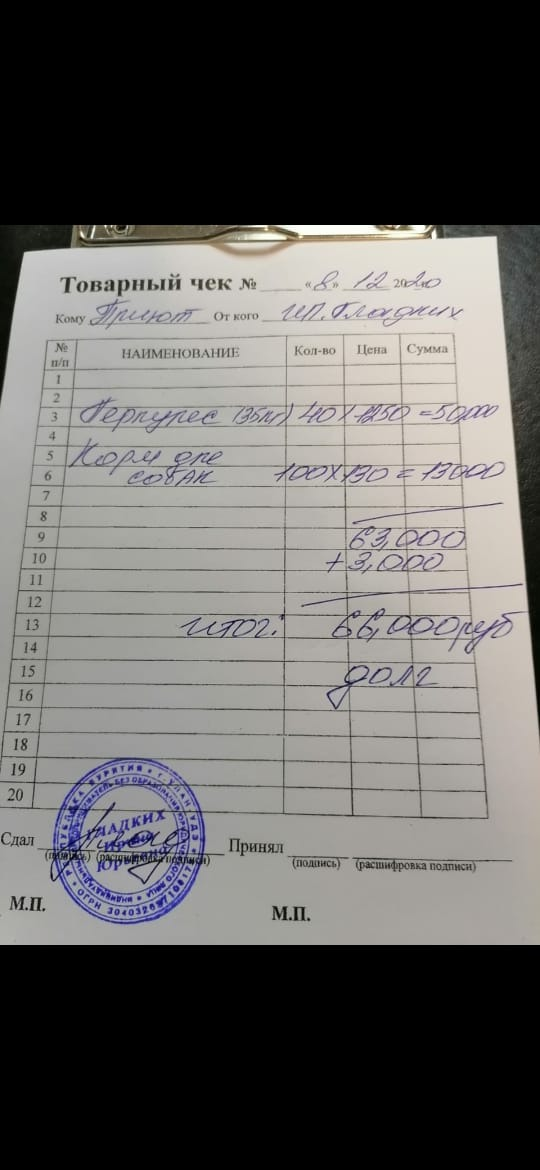 Товарный чек № ____ «8» 12 2020
Кому Приют От кого ИП. Гладких
№ п/п НАИМЕНОВАНИЕ Кол-во Цена Сумма
1
2
3 Геркулес (35кг) 40 х 1250 = 50,000
4
5 Корм для
6 собак 100 х 130 = 13000
7
8
9 63,000
10 + 3,000
11
12
13 итог: 66,000 руб
14
15 долг
16
17
18
19
20
РЕСПУБЛИКА БУРЯТИЯ * г. УЛАН-УДЭ
ГЛАДКИХ
Юрьевна
Сдал Принял
(подпись) (расшифровка подписи) (подпись) (расшифровка подписи)
М.П. М.П.